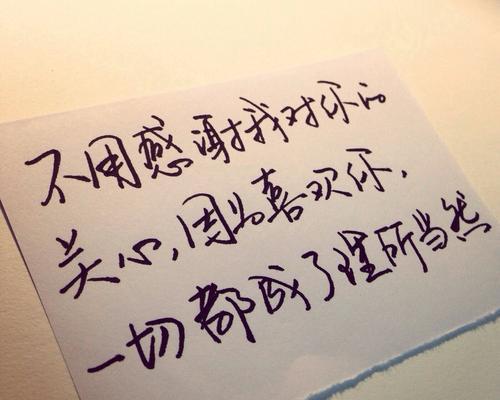 不用感谢我对你的
关心，因为喜欢你，
一切都成了理所当然